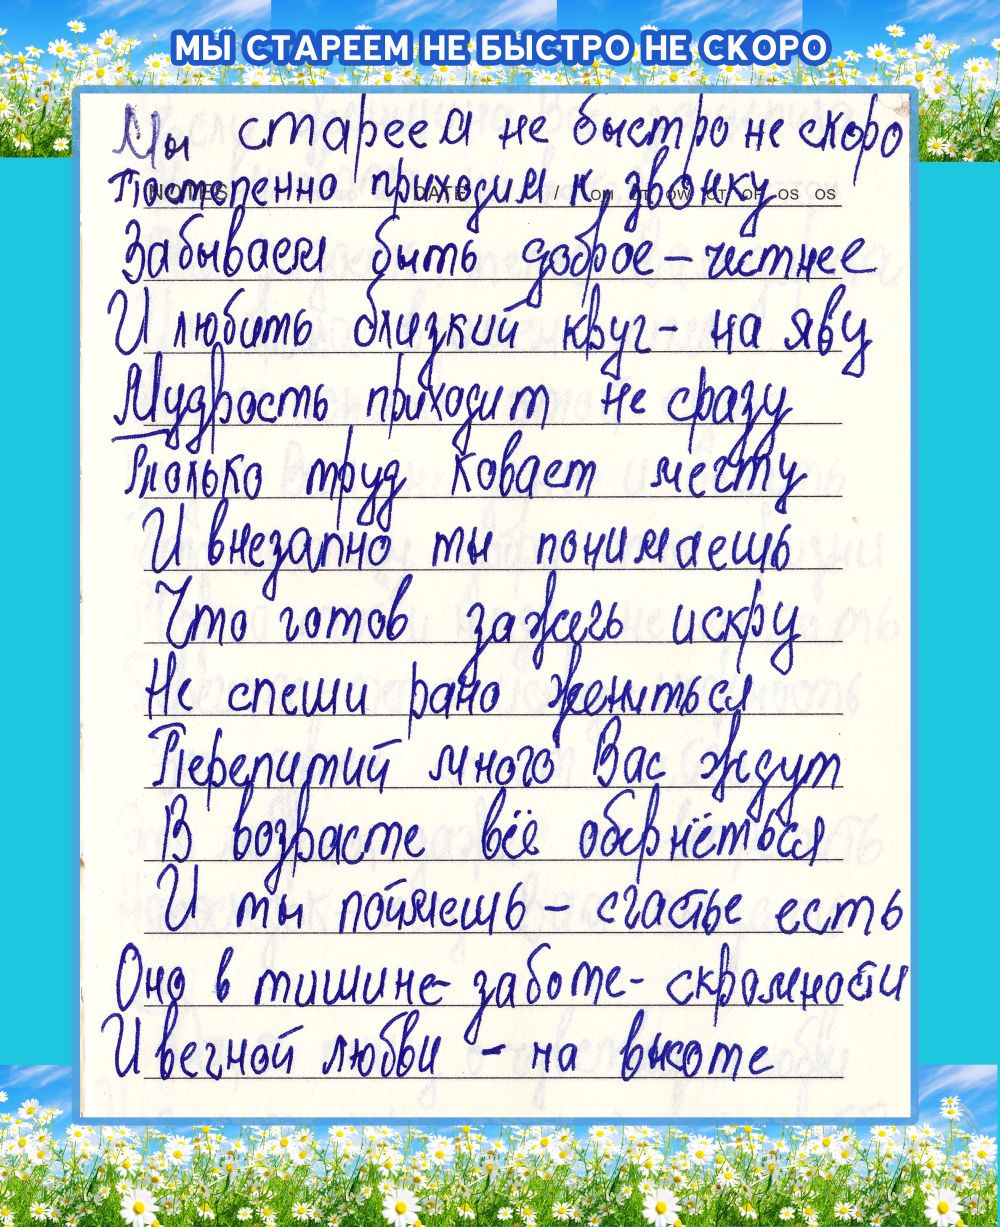 МЫ СТАРЕЕМ НЕ БЫСТРО НЕ СКОРО
Мы стареем не быстро не скоро
NOTES DATE /
Постепенно приходим к звонку
Забываем быть доброе – честнее
И любить близкий круг – на яву
Мудрость приходит не сразу
Только труд ковает мечту
И внезапно ты понимаешь
Что готов зажечь искру
Не спеши рано жениться
Перепитий много Вас ждут
В возрасте всё обернёться
И ты поймешь – счастье есть
Оно в тишине – заботе – скромности
И вечной любви – на высоте